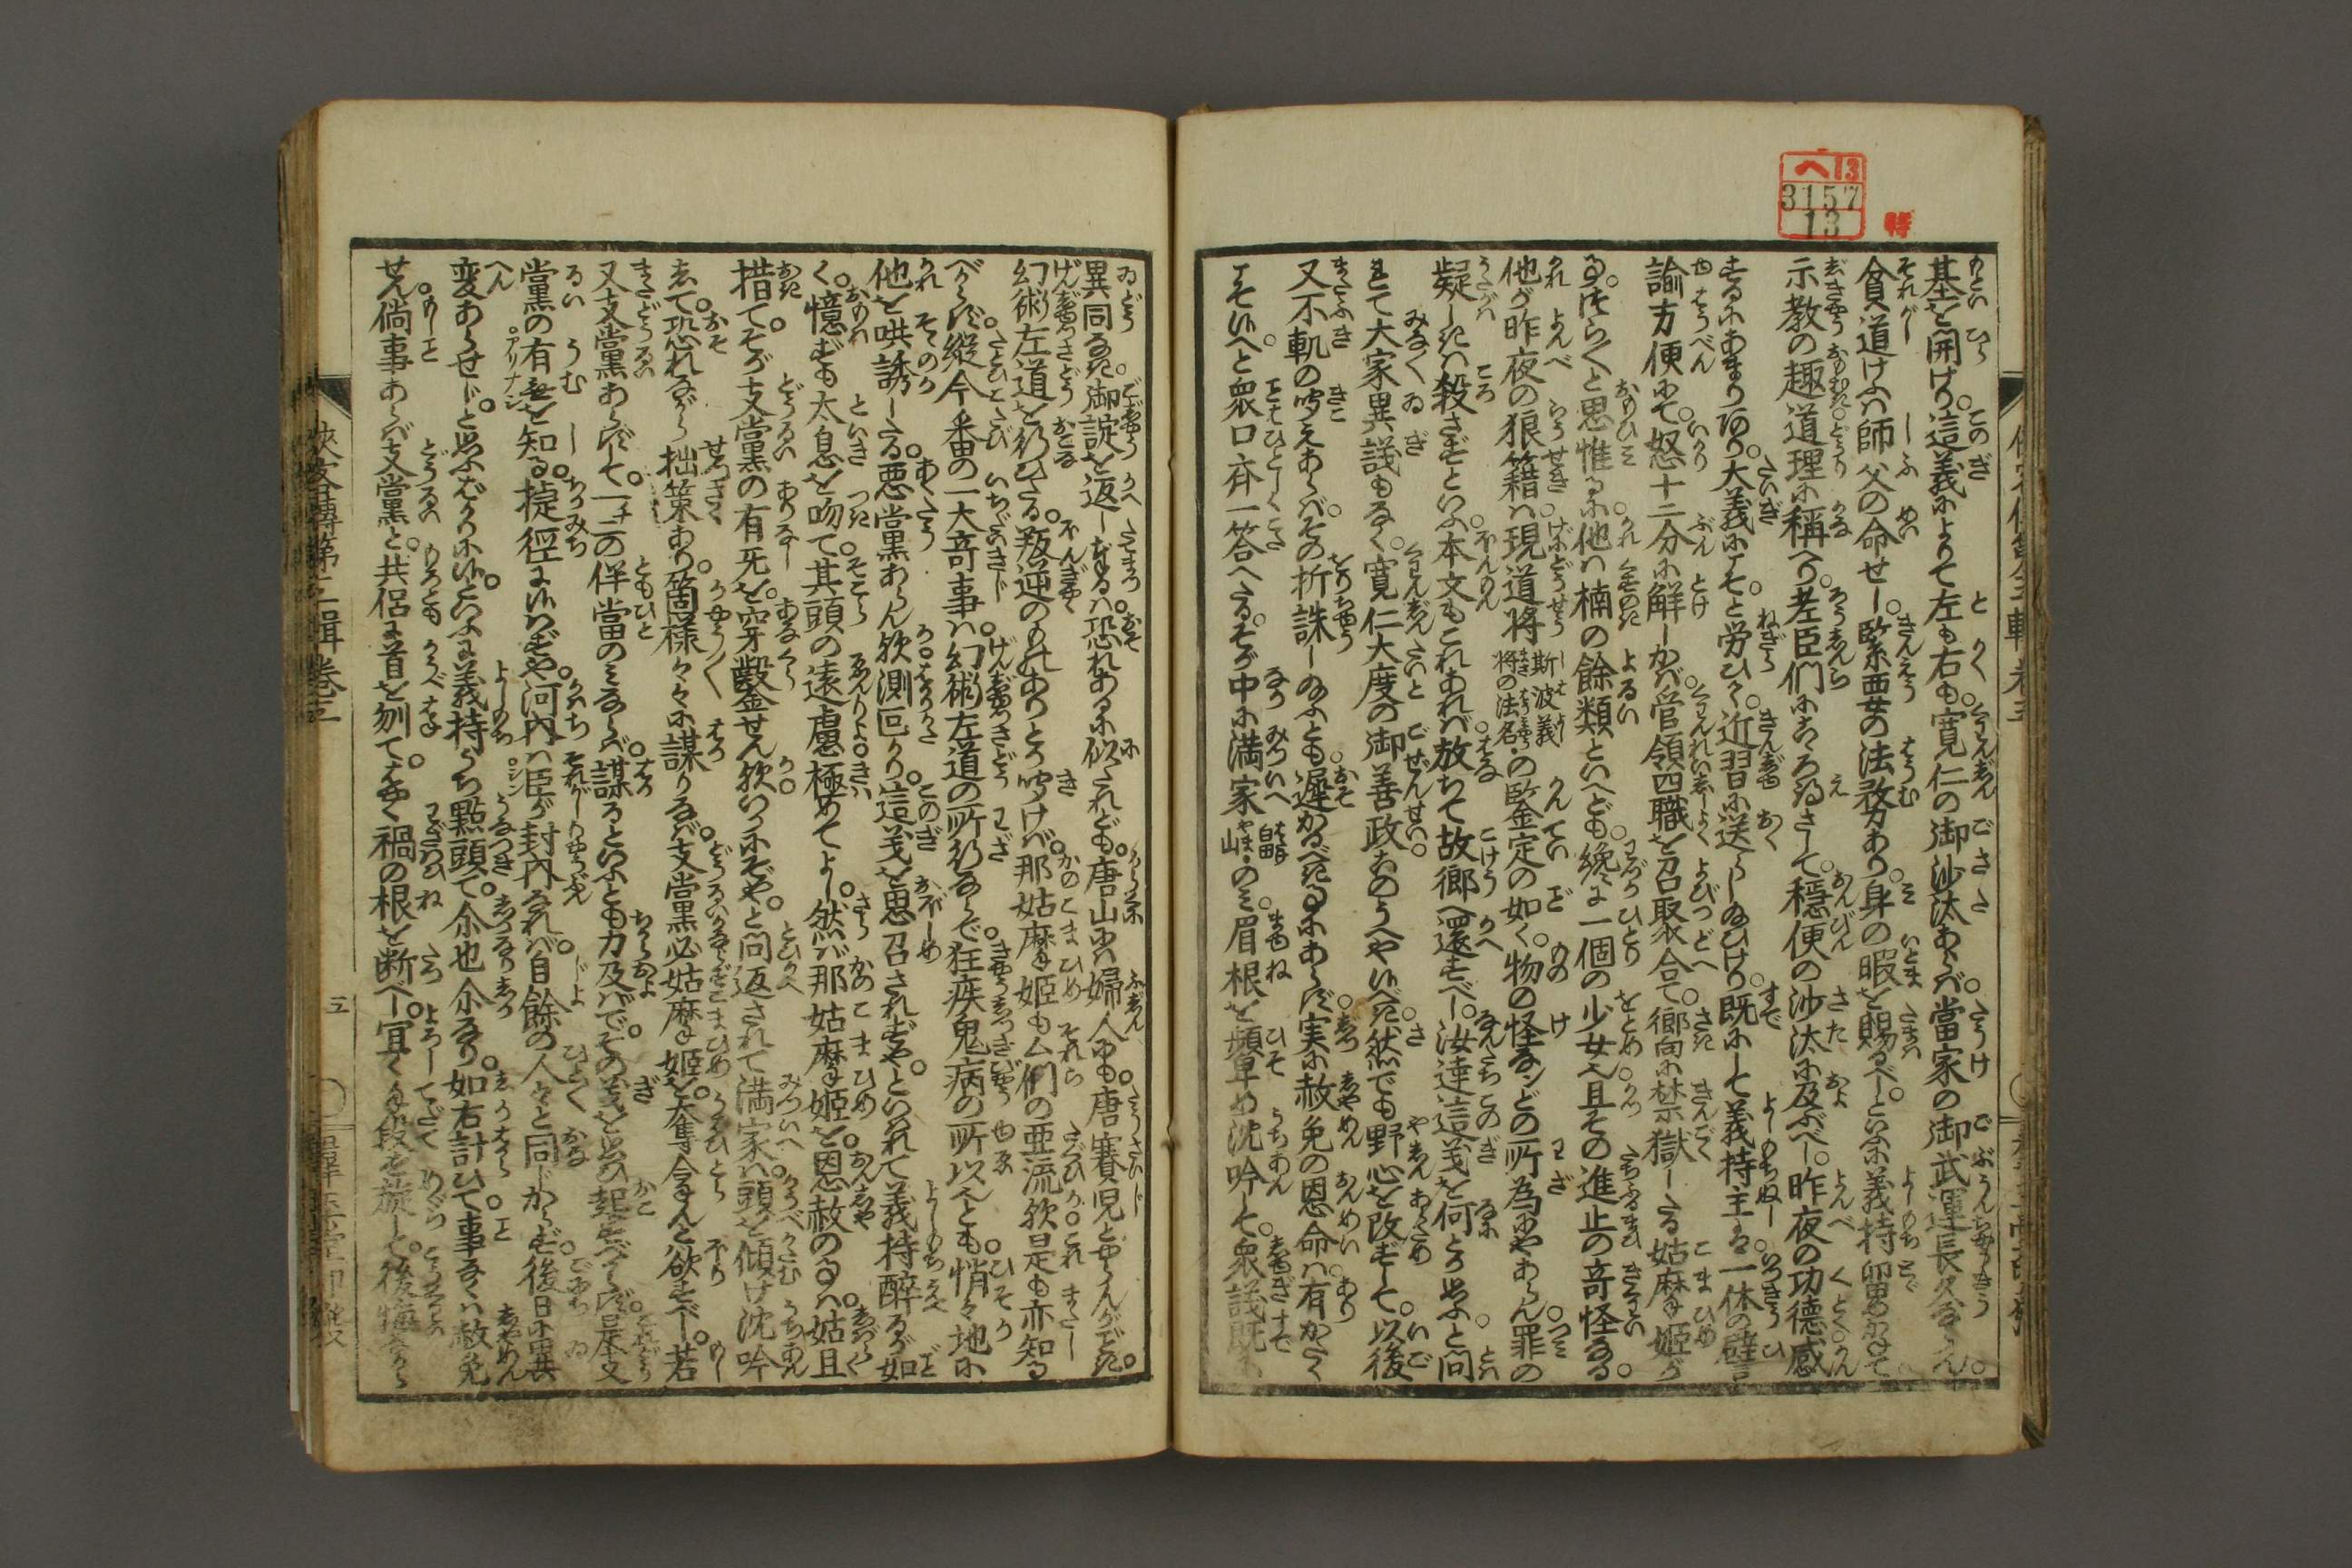 へ13
3157
13
特
基を開けり。這義によりて左も右も。寛仁の御沙汰あらば。當家の御武運長久ならん。
貧道けふは師父の命せし。緊要の法務あり。身の暇を賜るべしといふ。義持留めかねて
示教の趣。道理に稱へり。老臣們にこゝろ得さして。穏便の沙汰に及ぶべし。昨夜の功德感
ずるにあまりあり。大義にこそと労ひて。近習に送らし給ひけり。既にして義持主は。一休の譬言
諭方便にて。怒十二分に解しかば。管領四職を召聚合て。嚮に禁獄したる姑麻姫が
事。つら〱と思惟るに。他は楠の餘類といへども。纔に一個の少女也。且その進止の奇怪なる。
他が昨夜の狼籍は。現道将
斯波義
将の法名
の鑒定の如く。物の怪などの所為にやあらん。罪の
疑しきは殺さずといふ。本文もこれあれば。放ちて故郷へ還すべし。汝達這義を何とか思ふと。問
れて大家異議もなく。寛仁大度の御善政。この うへや候べき。然でも野心を改ずして。以後
又不軌の聞えあらば。その折誅し給ふとも。遅かるべき事にあらず。実に赦免の恩命は。有がたく
こそ候へと。衆口斉一答へたる。そが中に満家
畠
山
のみ。眉根を顰め沈吟して。衆議既に
俠客傳第二輯巻三
五
異同なき。御諚を返し奉るは。恐れあるに似たれども。唐山には婦人にも。唐賽児とやらんがごとき。
幻術左道を行ひたる。叛逆のものありとか聞けば。那姑麻姫もム們の亜流歟。是も亦知る
べからず。縦今番の一大奇事は。幻術左道の所行ならで。狂疾鬼病の所以也とも。悄々地に
他を哄誘したる。悪黨あらん歟測叵かり。這義を思召されずや。といはれて義持酔るが如
く。憶ずも太息を吻て。其頭の遠慮極めてよし。然ば那姑麻姫を。恩赦の事は。姑且
措て。そが支黨の有无を。穿鑿せん歟いかにぞや。と問返されて満家は。頭を傾け沈吟
して。恐れながら拙策あり。箇様々々に謀りなば。支黨必姑麻姫を。奪令んと欲すべし。若
又支黨あらずして。一二の伴當のみならば。謀るといふとも力及ばで。その義を思ひ起すべからず。是支
黨の有无を知る。捷徑に候はずや。河内は臣が封内なれば。自餘の人々と同じからず。後日に異
変あらせじと。思ふばかりに候。といふに義持うち點頭て。尒也尒なり。如右計ひて。事なくは赦免
せん。倘事あらば支黨と。共侶に首を刎て。はやく禍の根を断べし。宜く手段を旋らし